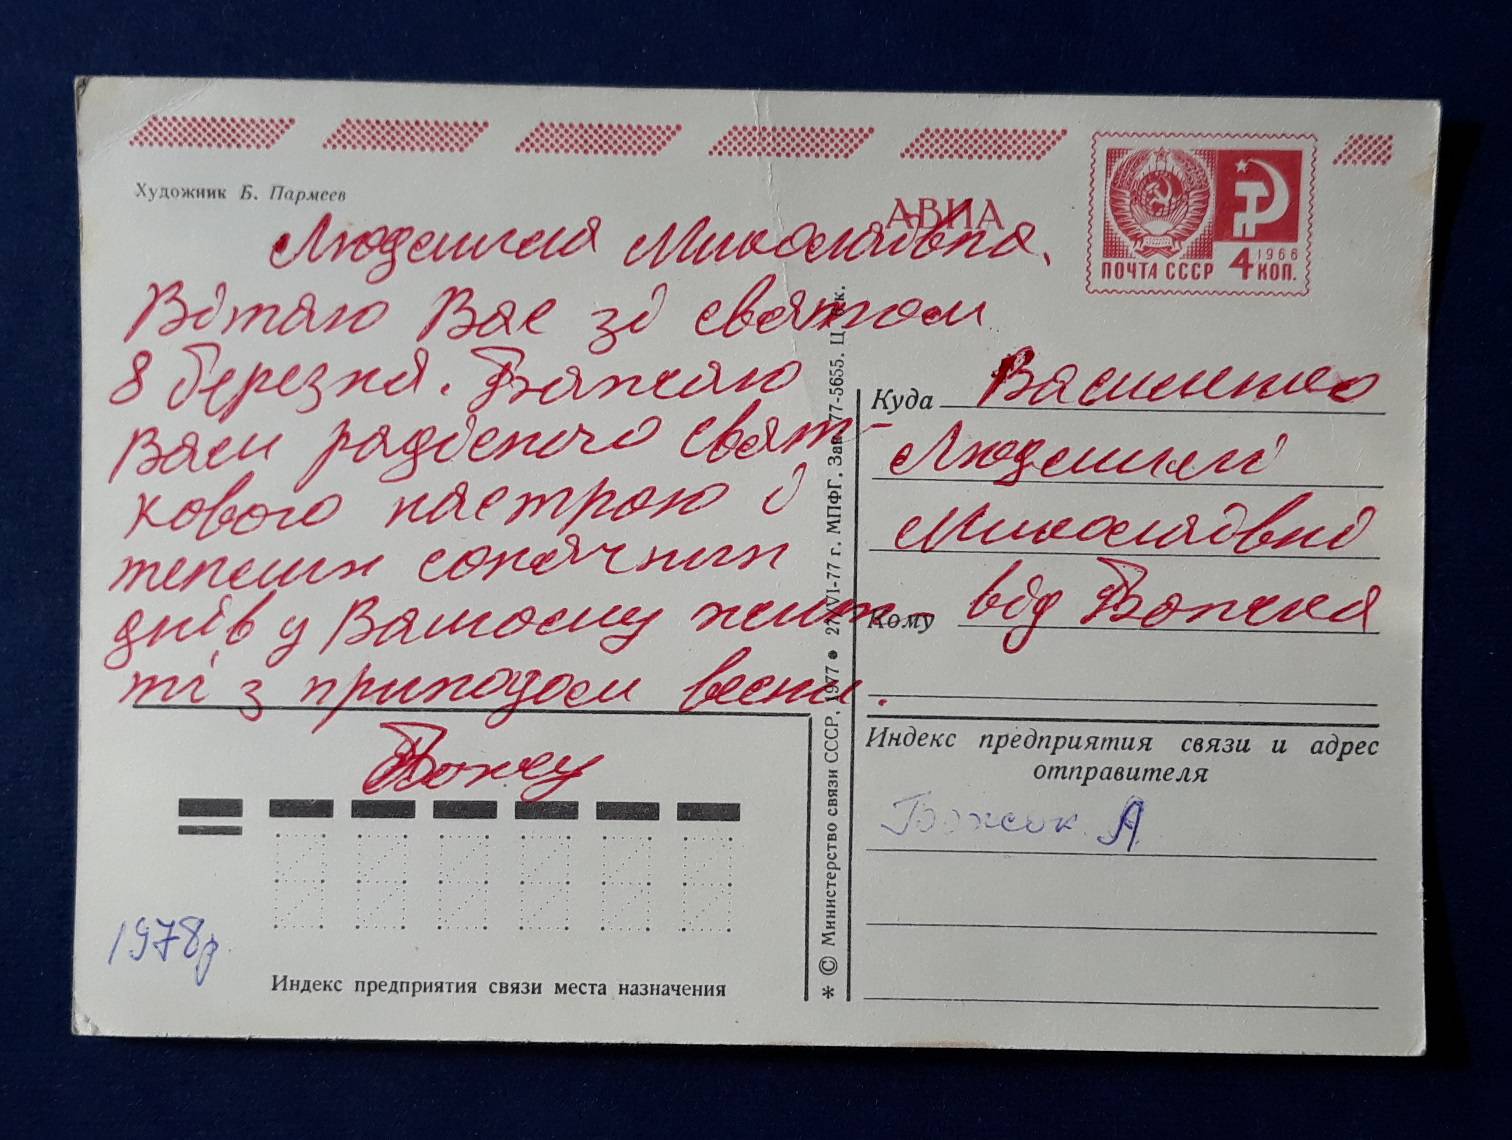 Художник Б. Пармеев
АВИА
ПОЧТА СССР 4 КОП.
1966
Людмила Миколаївна.
Вітаю Вас зі святом
8 березня. Бажаю
Вам радісного свят-
кового настрою і
теплих сонячних
днів у Вашому жит-
ті з приходом весни.
1978р
Индекс предприятия связи места назначения
* © Министерство связи СССР. 1977 ● 27/VI-77 г. МПФГ. Зак. 77-5655. Ц. к.
Куда Василенко
Людмилі
Миколаївні
Кому від Божка
Индекс предприятия связи и адрес
отправителя
Божок А